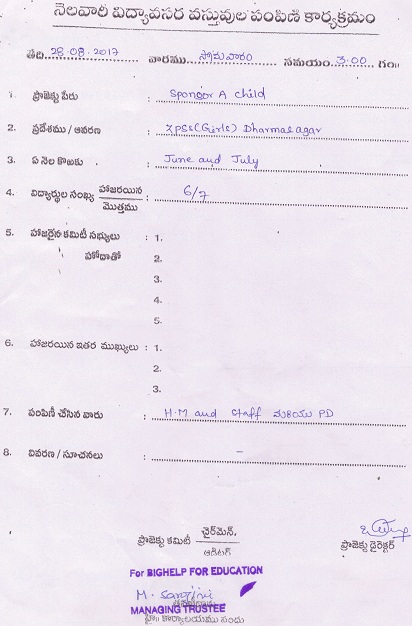 నెలవారి విద్యావసర వస్తువుల పంపిణి కార్యక్రమం
తేది 28.08.2017 వారము సోమవారం సమయం 3:00 గం॥
1. ప్రాజెక్టు పేరు : Sponsor A child
2. ప్రదేశము / ఆవరణ : ZPSS(Girls) Dharmasagar
3. ఏ నెల కొఱకు : June and July
4. విద్యార్థుల సంఖ్య హాజరయిన / మొత్తము : 6/7
5. హాజరైన కమిటీ సభ్యులు : 1.
హోదాతో 2.
3.
4.
5.
6. హాజరయిన ఇతర ముఖ్యులు : 1.
2.
3.
7. పంపిణీ చేసిన వారు : H.M and staff మరియు PD
8. వివరణ / సూచనలు : -
ప్రాజెక్టు కమిటీ ఛైర్మెన్. / ఆడిటర్
ప్రాజెక్టు డైరెక్టర్
For BIGHELP FOR EDUCATION
M. Sanjini
MANAGING TRUSTEE